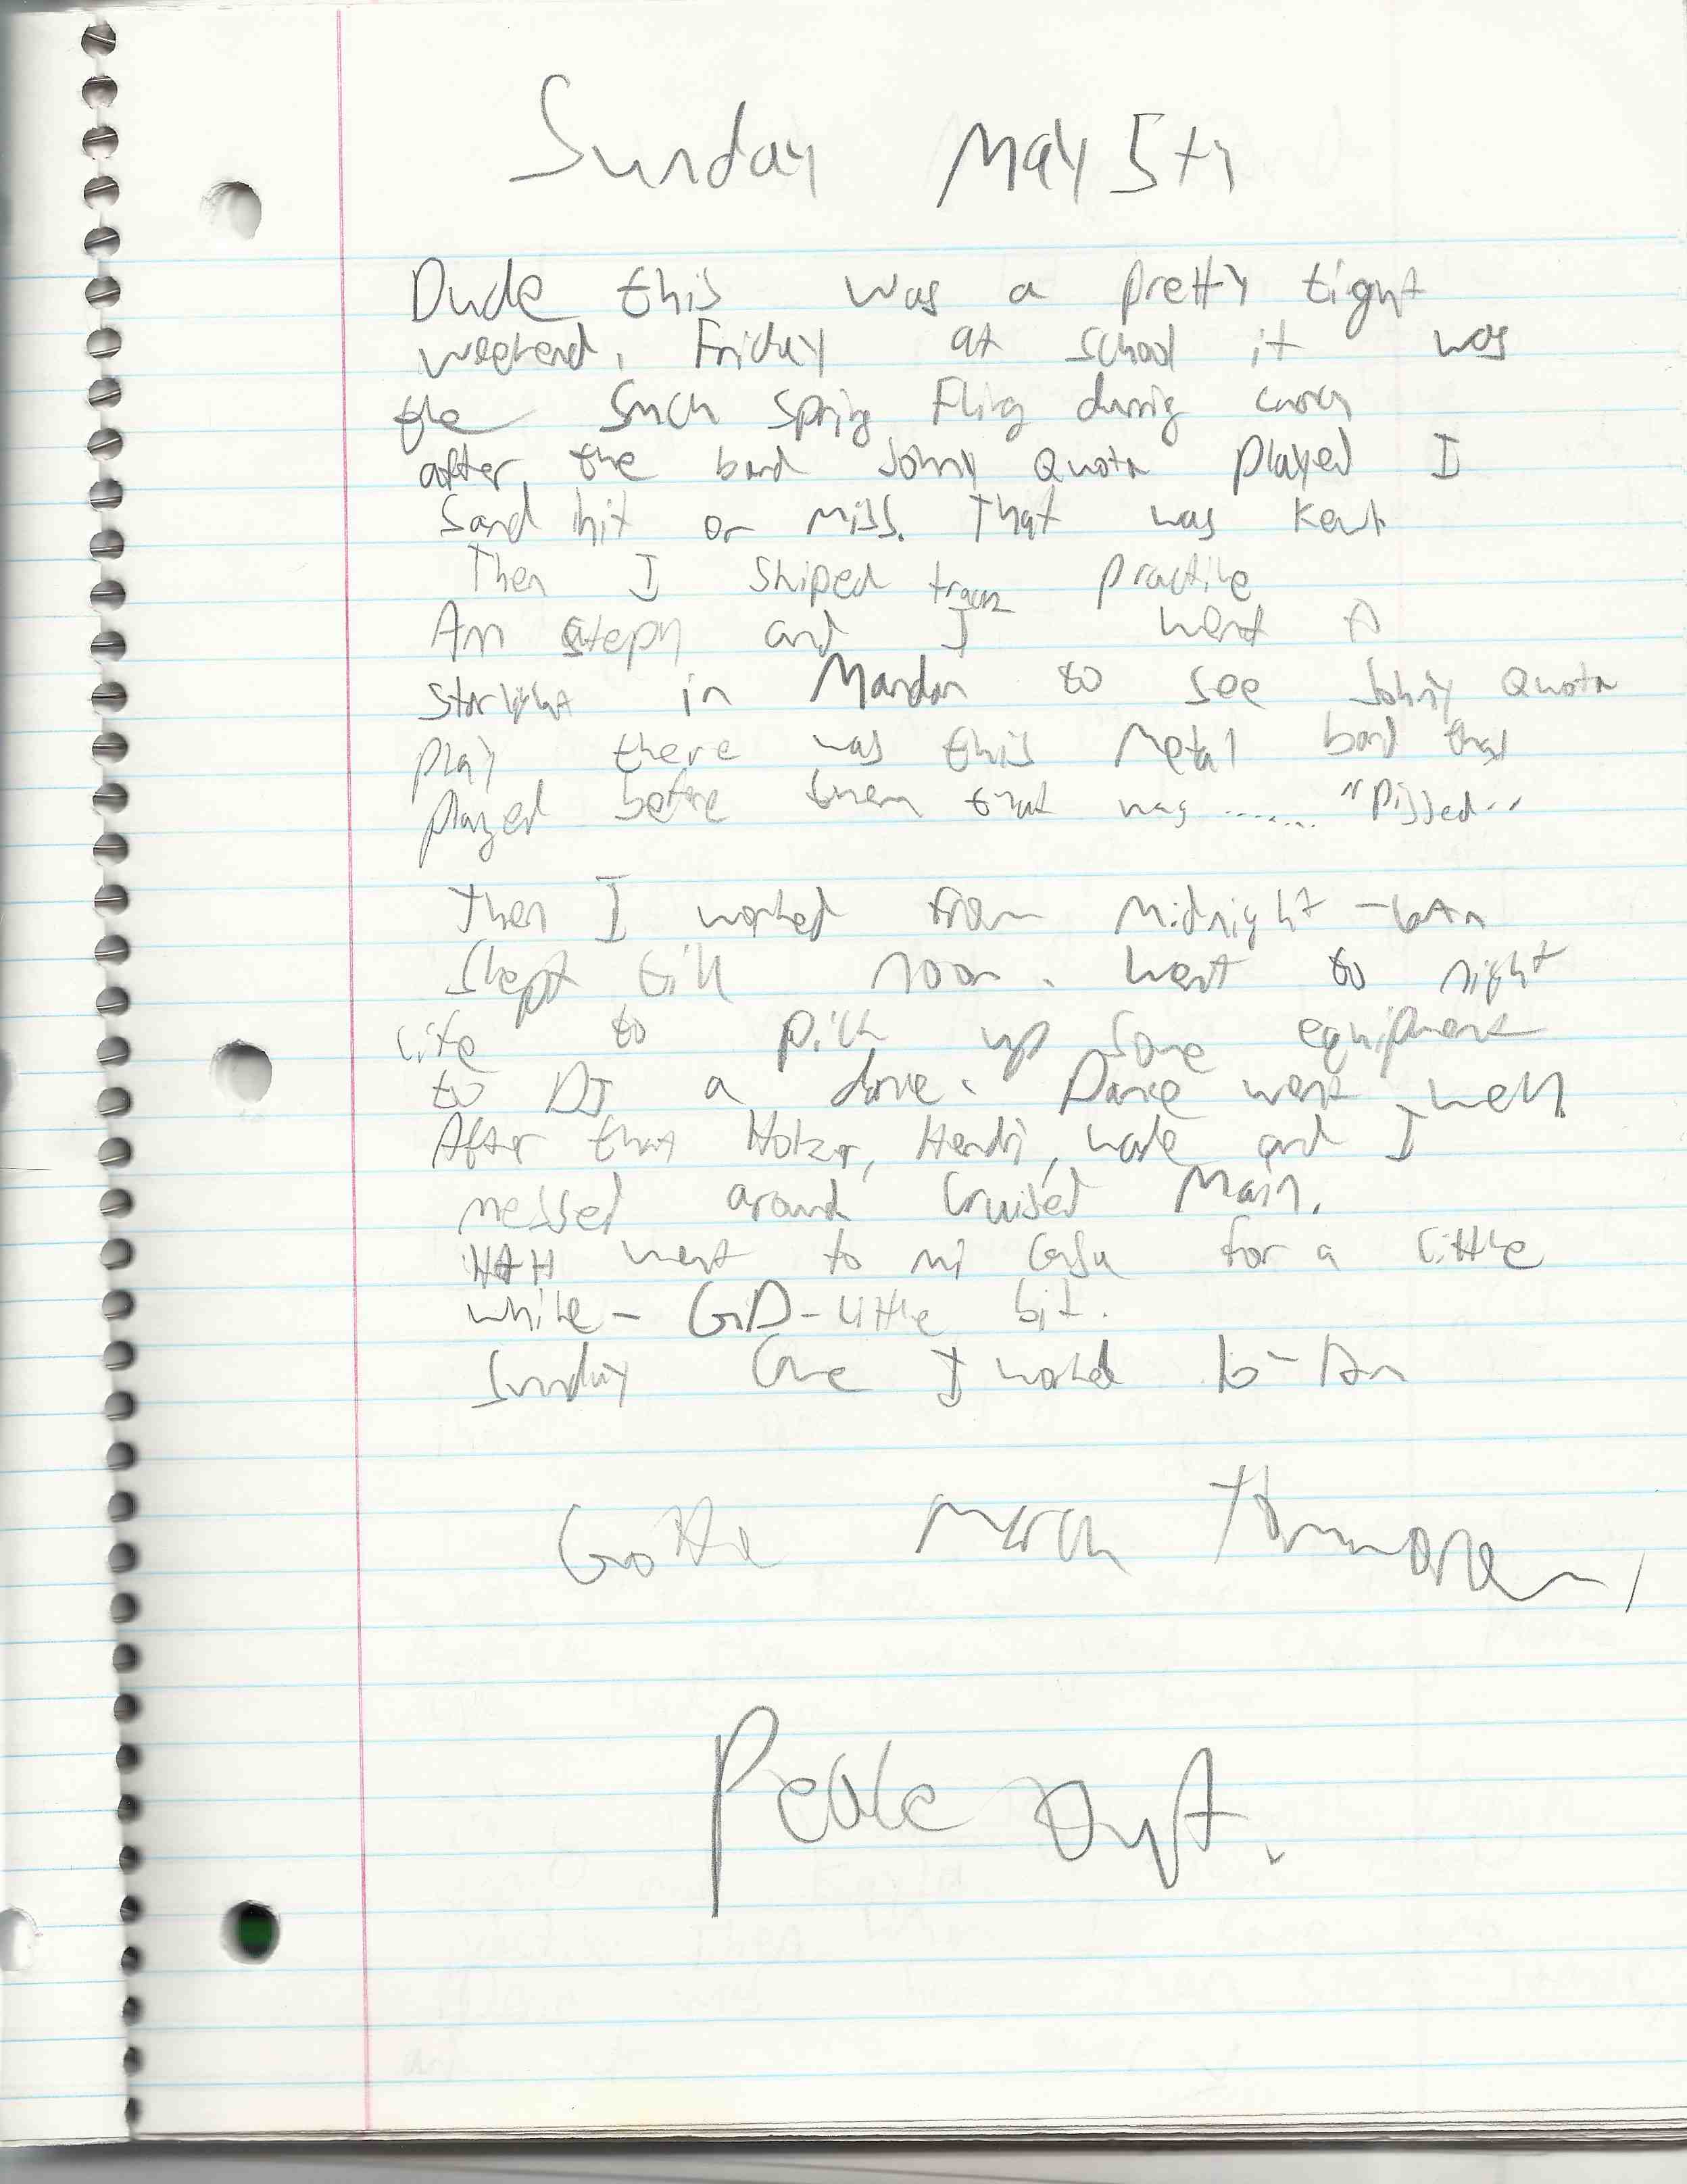 Sunday May 5th
Dude this was a pretty tight
weekend, Friday at school it was
the Spring Fling during
after the band Johny Quota played I
Sand hit or miss. That was
Then I skiped track practice
steph and I went to
starlight in Mandan to see Johny Quota
play there was this metal band that
played before them that was ....... "Pissed"
Then I worked from Midnight - 6AM
Slept till noon. Went to night
Life to pick up some equipment
to DJ a dance. Dance went well.
After that Holzer, Hendri, wade and I
messed around Cruised Main.
H&H went to mi Casa for a little
while - GD - little bit.
Sunday Came I worked
Gotta
Peace Out.